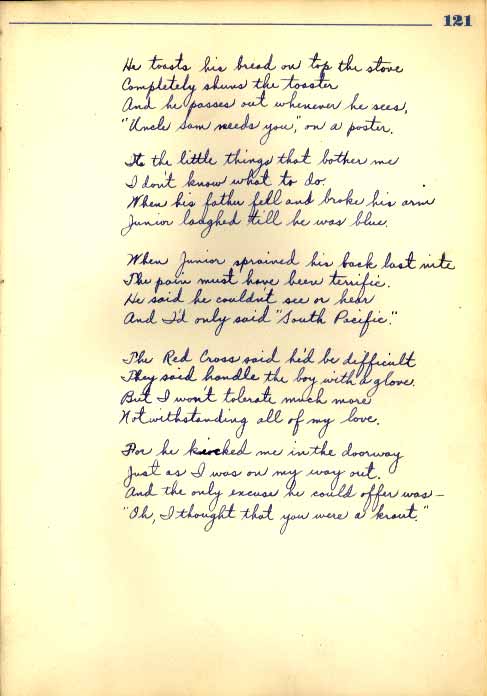 121
He toasts his bread on top the stove
Completely shuns the toaster
And he passes out whenever he sees,
"Uncle Sam needs you," on a poster.
Its the little things that bother me
I don't know what to do.
When his father fell and broke his arm
Junior laughed till he was blue.
When Junior sprained his back last nite
The pain must have been terrific.
He said he couldn't see or hear
And I'd only said "South Pacific."
The Red Cross said he'd be difficult
They said handle the boy with a glove.
But I won't tolerate much more
Notwithstanding all of my love.
For he kicked me in the doorway
Just as I was on my way out.
And the only excuse he could offer was—
"Oh, I thought that you were a kraut."